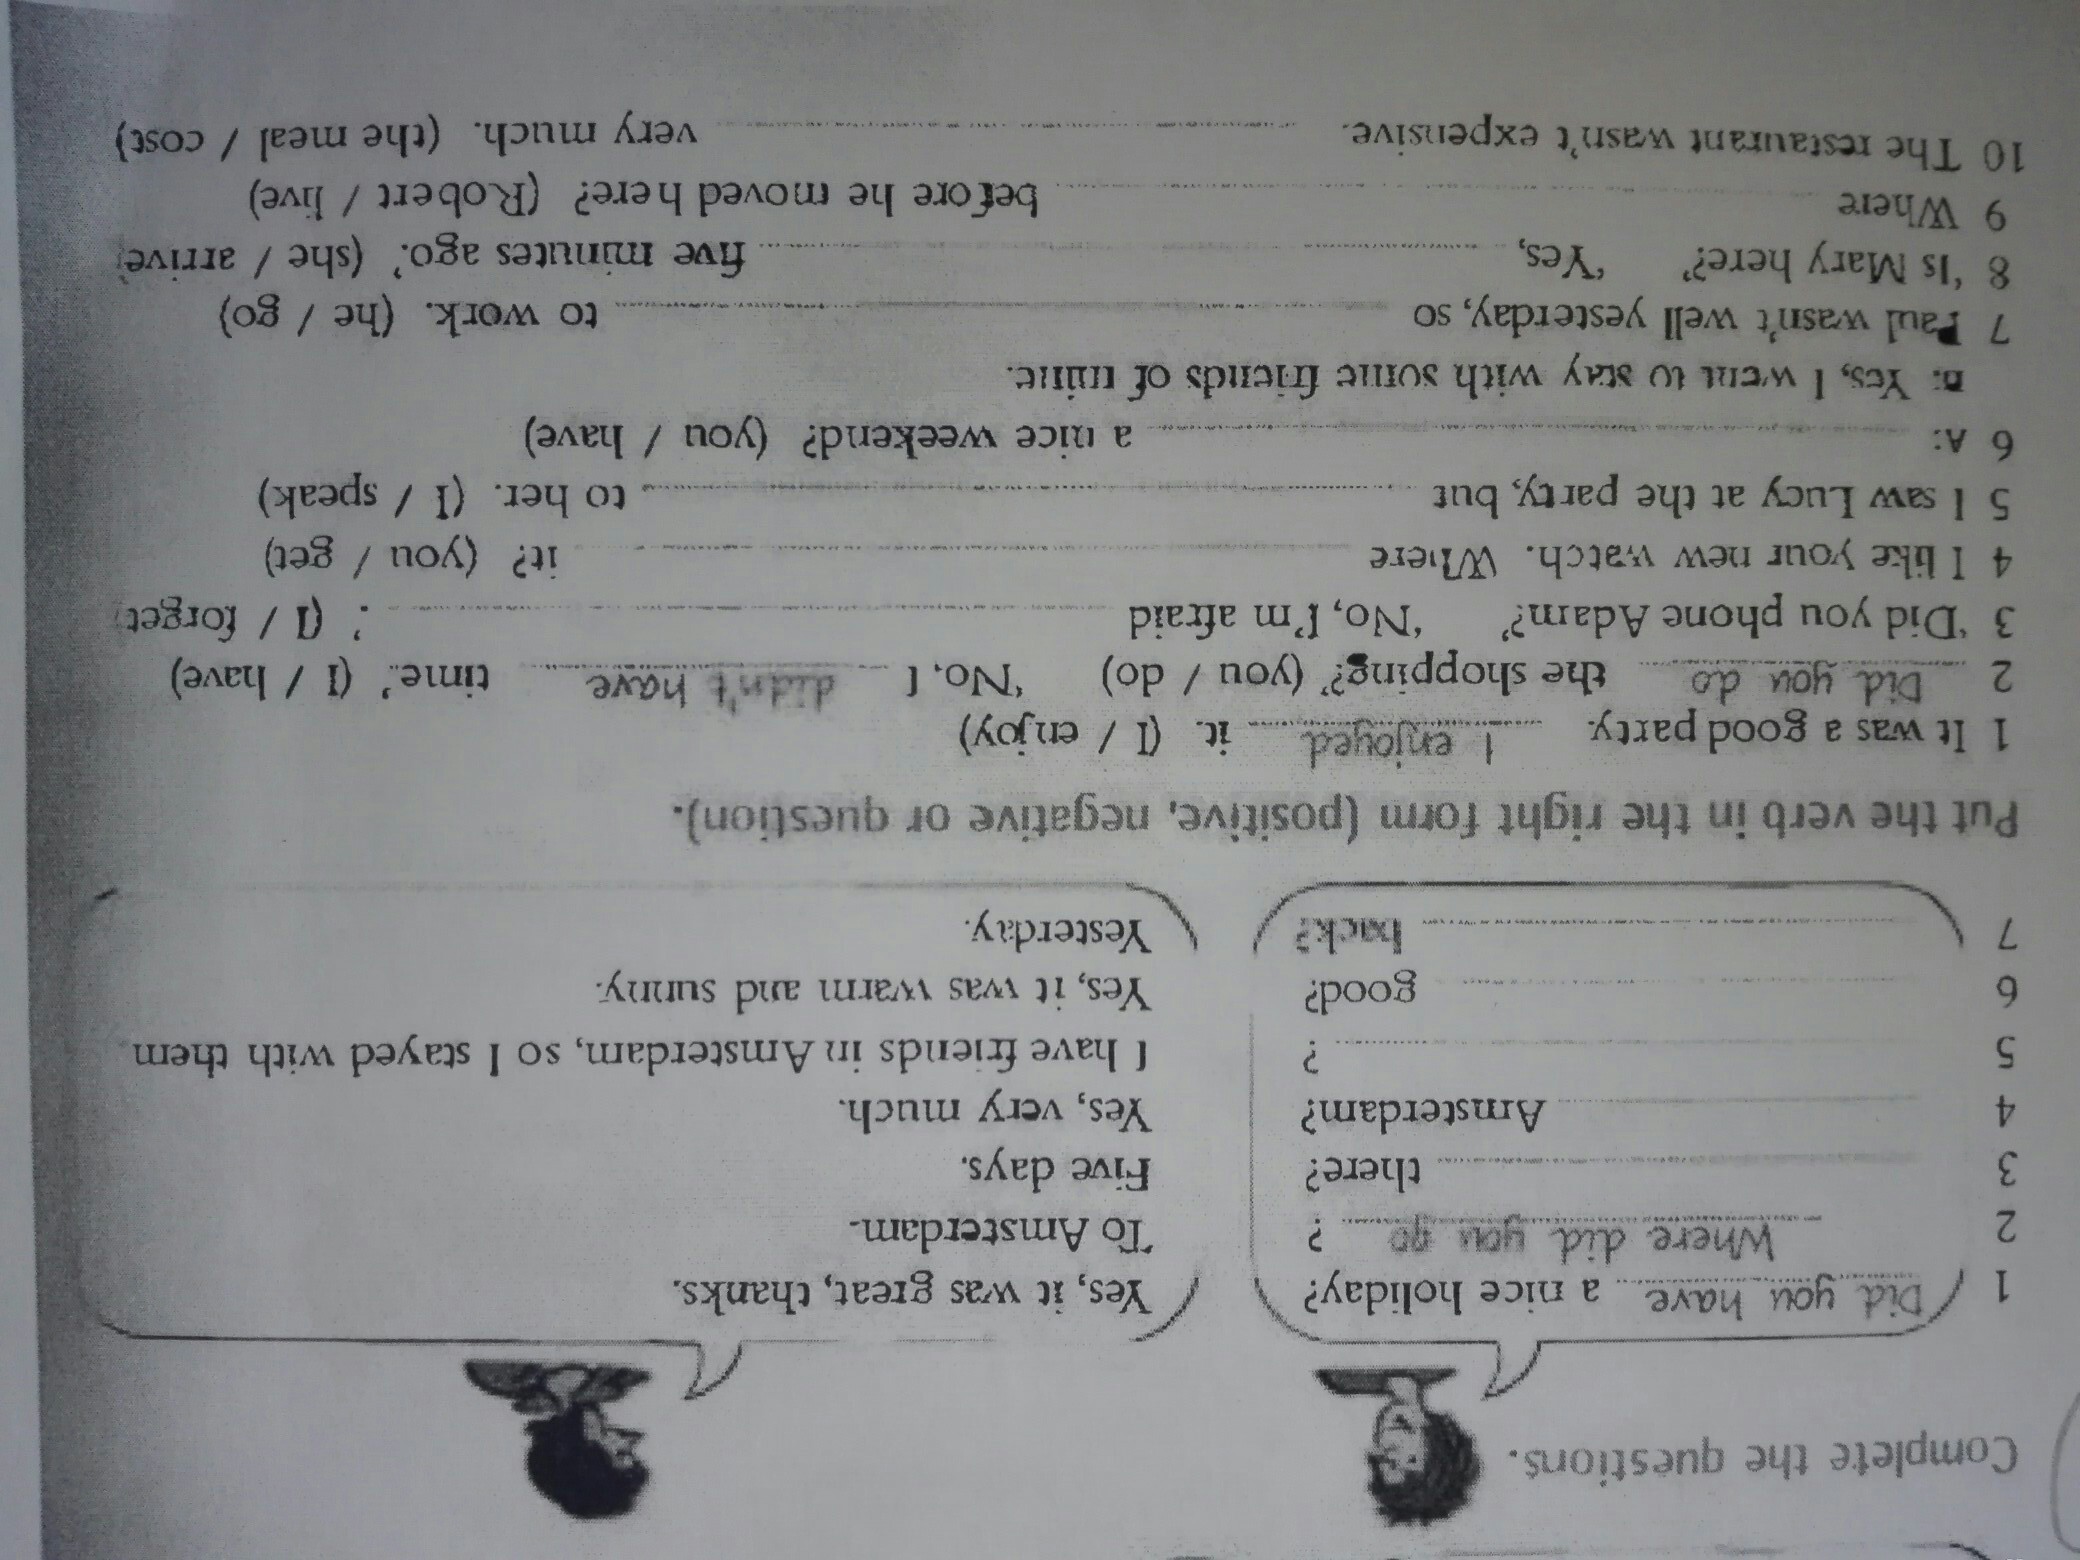 Complete the questions.
1 Did you have a nice holiday? Yes, it was great, thanks.
2 Where did you go ? To Amsterdam.
3 there? Five days.
4 Amsterdam? Yes, very much.
5 ? I have friends in Amsterdam, so I stayed with them
6 good? Yes, it was warm and sunny.
7 back? Yesterday.
Put the verb in the right form (positive, negative or question).
1 It was a good party. I enjoyed it. (I / enjoy)
2 Did you do the shopping?' (you / do) 'No, I didn't have time.' (I / have)
3 'Did you phone Adam?' 'No, I'm afraid .' (I / forget)
4 I like your new watch. Where it? (you / get)
5 I saw Lucy at the party, but to her. (I / speak)
6 A: a nice weekend? (you / have)
B: Yes, I went to stay with some friends of mine.
7 Paul wasn't well yesterday, so to work. (he / go)
8 'Is Mary here?' 'Yes, five minutes ago.' (she / arrive)
9 Where before he moved here? (Robert / live)
10 The restaurant wasn't expensive. very much. (the meal / cost)